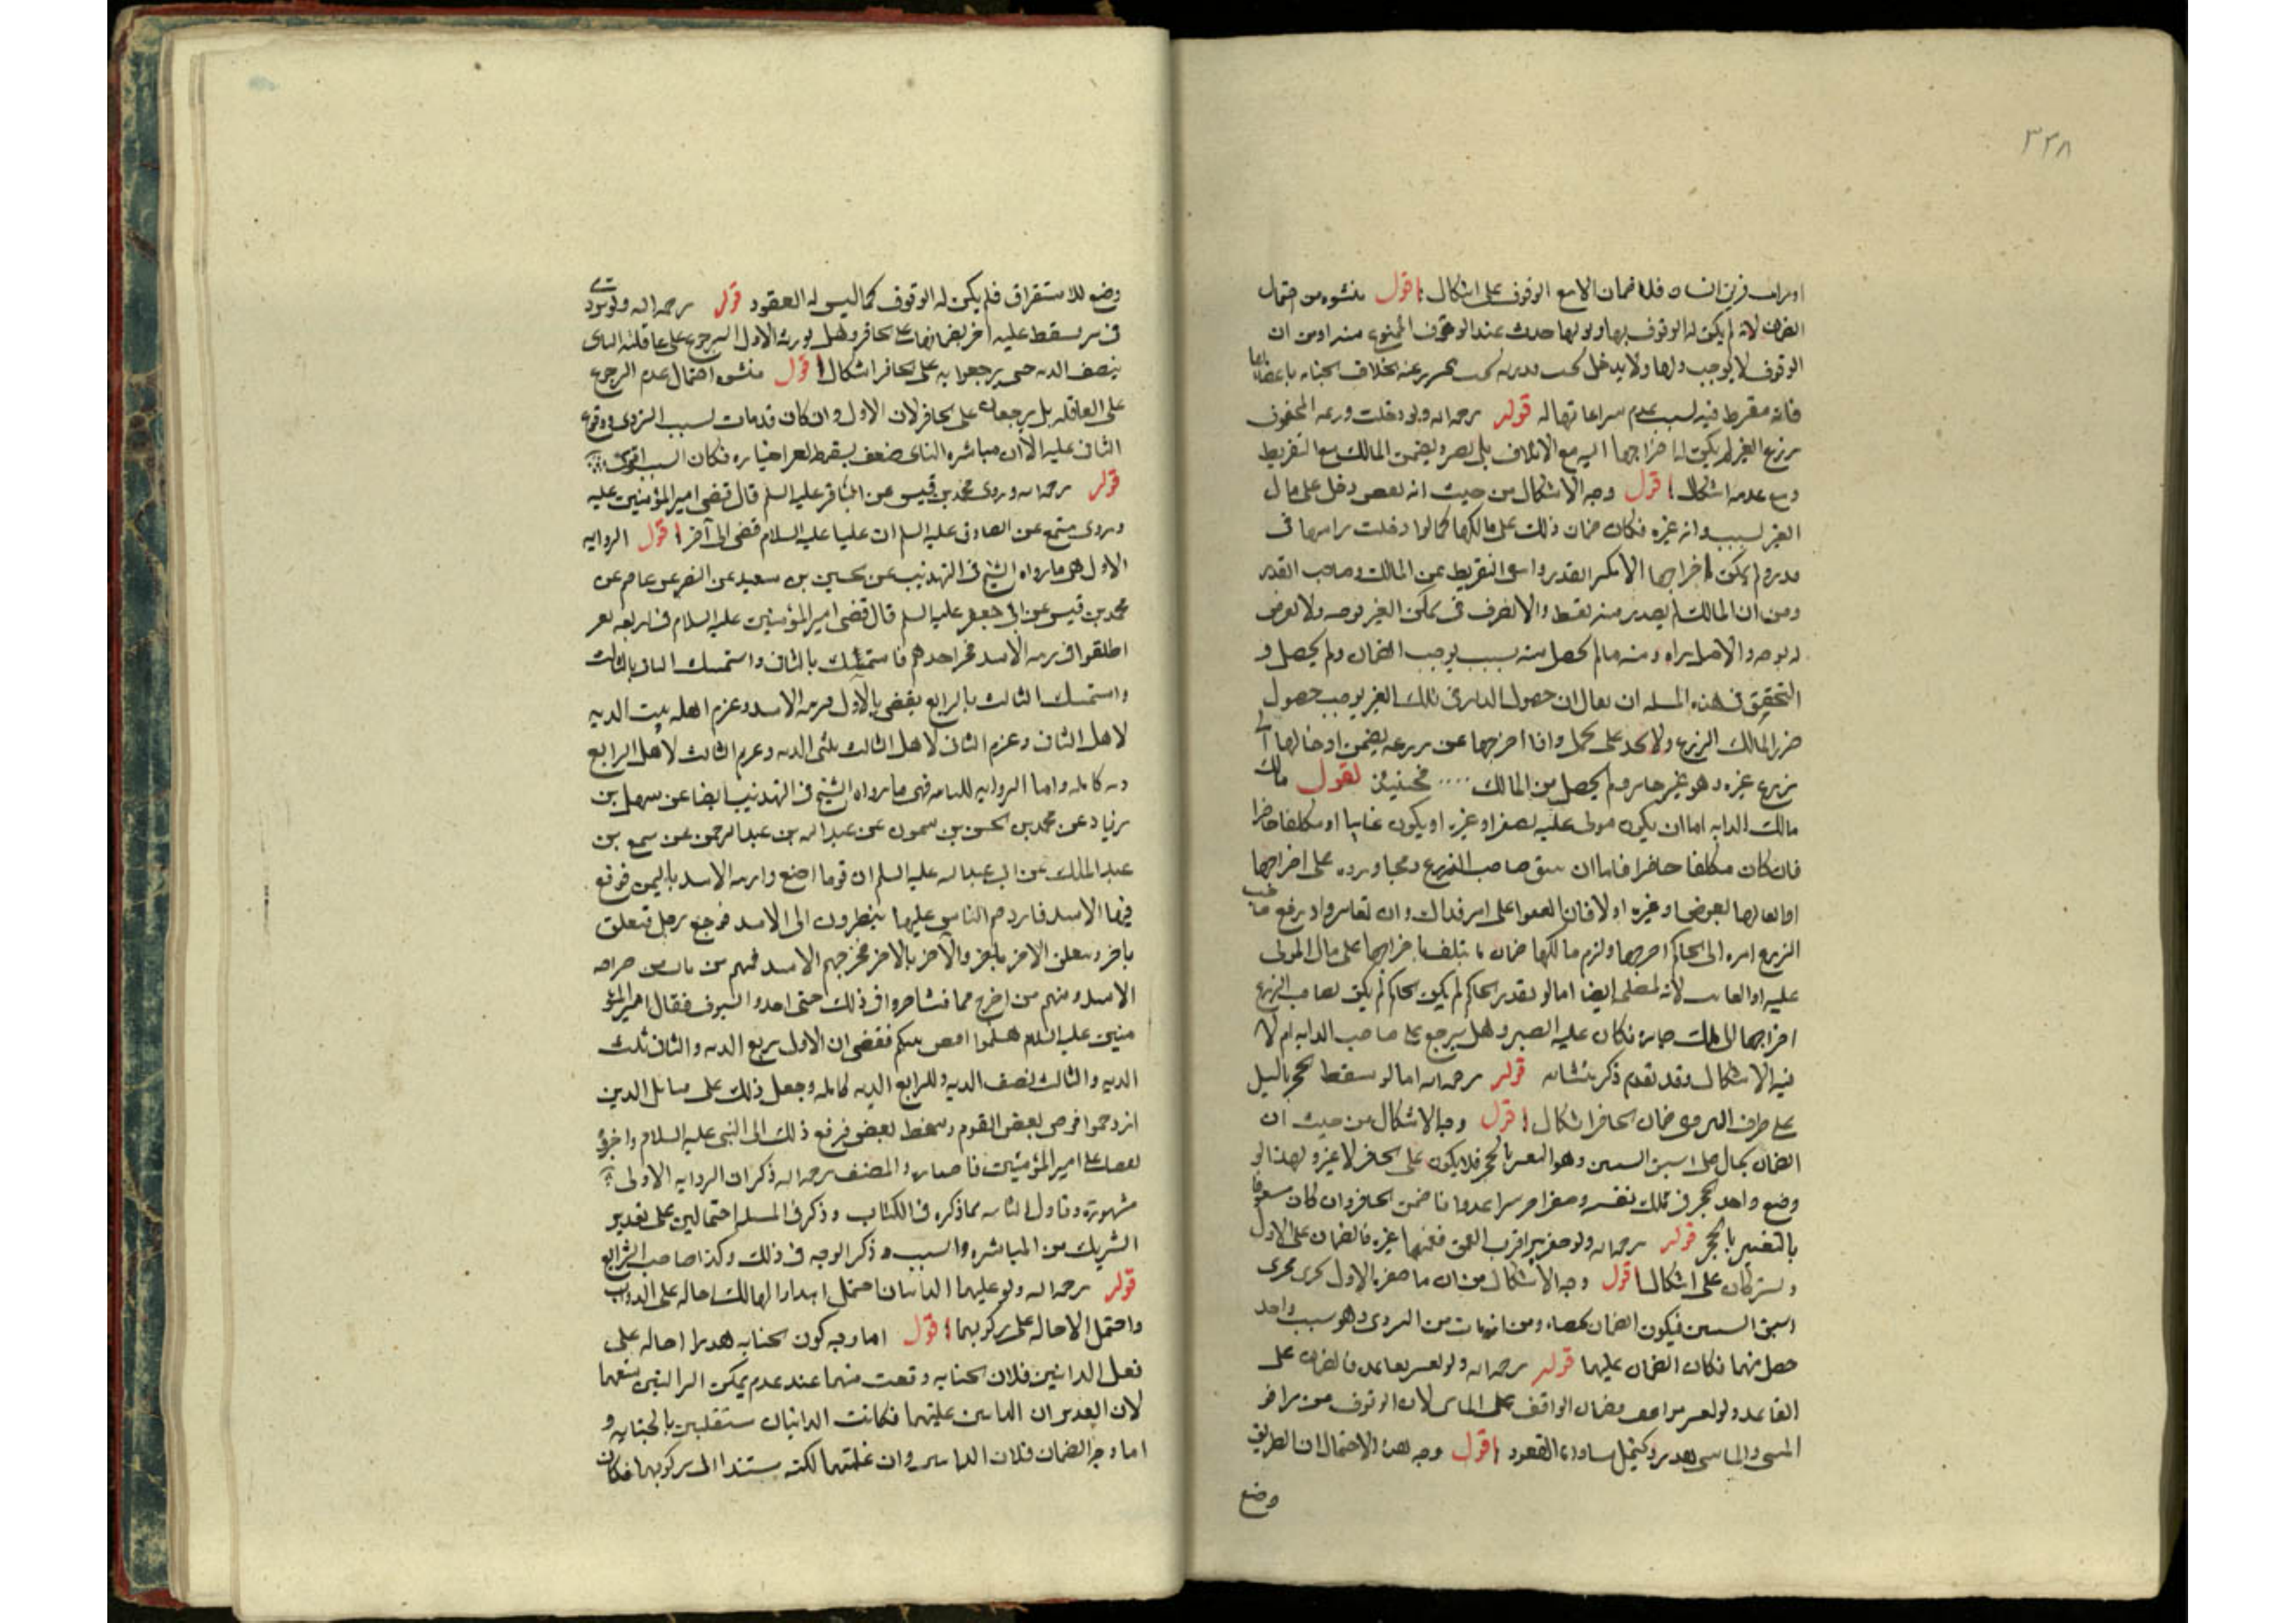 ٣٣٨
فلا ضمان الا مع الوقوف على اشكال اقول منشوه من احتمال
الضمان لانه لم يكن له الوقوف بها وبولها حدث عند الوقوف الممنوع منه او من ان
الوقوف لا يوجب ولا يدخل تحت بخلاف الجنايه باعضائها
فانه مفرط فيه لسبب عدم مراعاتها له قوله رحمه الله ولو دخلت زرعه المحفوف
بزرع الغير لم يكن له اخراجها اليه مع الاتلاف بل يصبر ويضمن المالك مع التفريط
ومع عدمه اشكال اقول وجه الاشكال من حيث انه نقص دخل على مال
الغير بسبب دابه غيره فكان ضمان ذلك على مالكها كما لو ادخلت راسها فى
قدر ولم يمكن اخراجها الا بكسر القدر وانتفى التفريط عن المالك وصاحب القدر
ومن ان المالك لم يصدر منه تفريط
والاصل براه ذمته ما لم يحصل منه سبب يوجب الضمان ولم يحصل و
التحقيق فى هذه المسله ان يقال ان حصول الدابه فى ملك الغير يوجب حصول
ضرر المالك الزرع واذا اخرجها عن زرعه يضمن ادخالها الى
زرع غيره وهو غير جايز ولم يحصل من المالك .... فحينئذ نقول مالك
مالك الدابه اما ان يكون مولى عليه لصغر او غيره او يكون غايبا او مكلفا حاضرا
فان كان مكلفا حاضرا فاما ان يتفق صاحب الزرع ومجاوره على اخراجها
او ابقائها بعوض او غيره اولا فان اتفقوا على امر فذاك وان تعاسروا رفع صاحب
الزرع امره الى الحاكم لاخراجها والزم مالكها ضمان ما يتلف باخراجها على مال المولى
عليه او الغايب لانه لمصلحته ايضا اما لو تعذر الحاكم لم يكن لصاحب الزرع
اخراجها الى ملك جاره فكان عليه الصبر وهل يرجع على صاحب الدابه ام لا
فيه الاشكال وقد تقدم ذكر منشائه قوله رحمه الله اما لو سقط الحجر بالسيل
على طرف البير ففى ضمان الحافر اشكال اقول وجه الاشكال من حيث ان
الضمان يحال على اسبق السببين وهو التعثر بالحجر فلا يكون على الحافر لا غيره ولهذا لو
وضع واحد الحجر فى ملك نفسه وحفر اخر بيرا عدوانا ضمن الحافر وان كان
بالتعثير بالحجر قوله رحمه الله ولو حفر بيرا قريب العمق فعمقها غيره فالضمان على الاول
ويشتركان على اشكال اقول وجه الاشكال من ان ما حفره الاول يجرى مجرى
اسبق السببين فيكون الضمان يخصه ومن انه مات من التردى وهو سبب واحد
حصل منهما فكان الضمان عليهما قوله رحمه الله ولو تعثر بقاعد فالضمان على
القاعد ولو تعثر بواقف فضمان الواقف على الماشى لان الوقوف من مرافق
المشى والماشى هدر ويحتمل مساواه القعود اقول وجه هذا الاحتمال ان الطريق
وضع
وضع للاستطراق فلم يكن له الوقوف كما ليس له القعود قوله رحمه الله ولو تردى
فى بير فسقط عليه اخر فضمانهما على الحافر وهل لورثه الاول الرجوع على عاقله الثانى
بنصف الديه حتى يرجعوا به على الحافر اشكال اقول منشوه احتمال عدم الرجوع
على العاقله بل يرجعان على الحافر لان الاول وان كان قد مات بسبب التردى ووقوع
الثانى عليه الا ان مباشره الثانى ضعف بسقوطه بغير اختياره فكان السبب اقوى
قوله رحمه الله وروى محمد بن قيس عن الباقر عليه السلم قال قضى امير المؤمنين عليه
وروى مسمع عن الصادق عليه السلم ان عليا عليه السلام قضى الى آخره اقول الروايه
الاولى هى ما رواه الشيخ فى التهذيب عن الحسين بن سعيد عن النضر عن عاصم عن
محمد بن قيس عن ابى جعفر عليه السلم قال قضى امير المؤمنين عليه السلام فى اربعه نفر
اطلقوا فى زبيه الاسد فخر احدهم فاستمسك بالثانى واستمسك الثانى بالثالث
واستمسك الثالث بالرابع فقضى بالاول فريسه الاسد وغرم اهله ثلث الديه
لاهل الثانى وغرم الثانى لاهل الثالث ثلثى الديه وغرم الثالث لاهل الرابع
ديه كامله واما الروايه الثانيه فهى ما رواه الشيخ فى التهذيب ايضا عن سهل بن
زياد عن محمد بن الحسن بن شمون عن عبد الله بن عبد الرحمن عن مسمع بن
عبد الملك عن ابى عبد الله عليه السلم ان قوما احتفروا زبيه الاسد باليمن فوقع
فيها الاسد فازدحم الناس عليها ينظرون الى الاسد فوقع رجل فتعلق
باخر وتعلق الاخر باخر والآخر بالاخر فجرحهم الاسد فمنهم من مات من جراحه
الاسد ومنهم من اخرج فمات فتشاجروا فى ذلك حتى اخذوا السيوف فقال امير المؤ
منين عليه السلام هلموا اقض بينكم فقضى ان للاول ربع الديه والثانى ثلث
الديه والثالث نصف الديه وللرابع الديه كامله وجعل ذلك على قبايل الذين
ازدحموا فرضى بعض القوم وسخط بعض فرفع ذلك الى النبى عليه السلام واخبر
بقضاء امير المؤمنين فاجازه والمصنف رحمه الله ذكر ان الروايه الاولى
مشهورة وتاول الثانيه بما ذكره فى الكتاب وذكر فى المسله احتمالين على تقدير
التشريك من المباشره والسبب وذكر الوجه فى ذلك وكذا صاحب الشرايع
قوله رحمه الله ولو غلبتهما الدابتان احتمل اهدار الهالك احاله على الدواب
واحتمل الاحاله على ركوبهما اقول اما وجه كون الجنايه هدرا احاله على
فعل الدابتين فلان الجنايه وقعت منهما عند عدم تمكن الراكبين منعهما
لان التقدير ان الدابتين غلبتهما فكانت الدابتان مستقلتين بالجنايه و
اما وجه الضمان فلان الدابتين وان غلبتهما لكنه مستند الى ركوبهما فكان